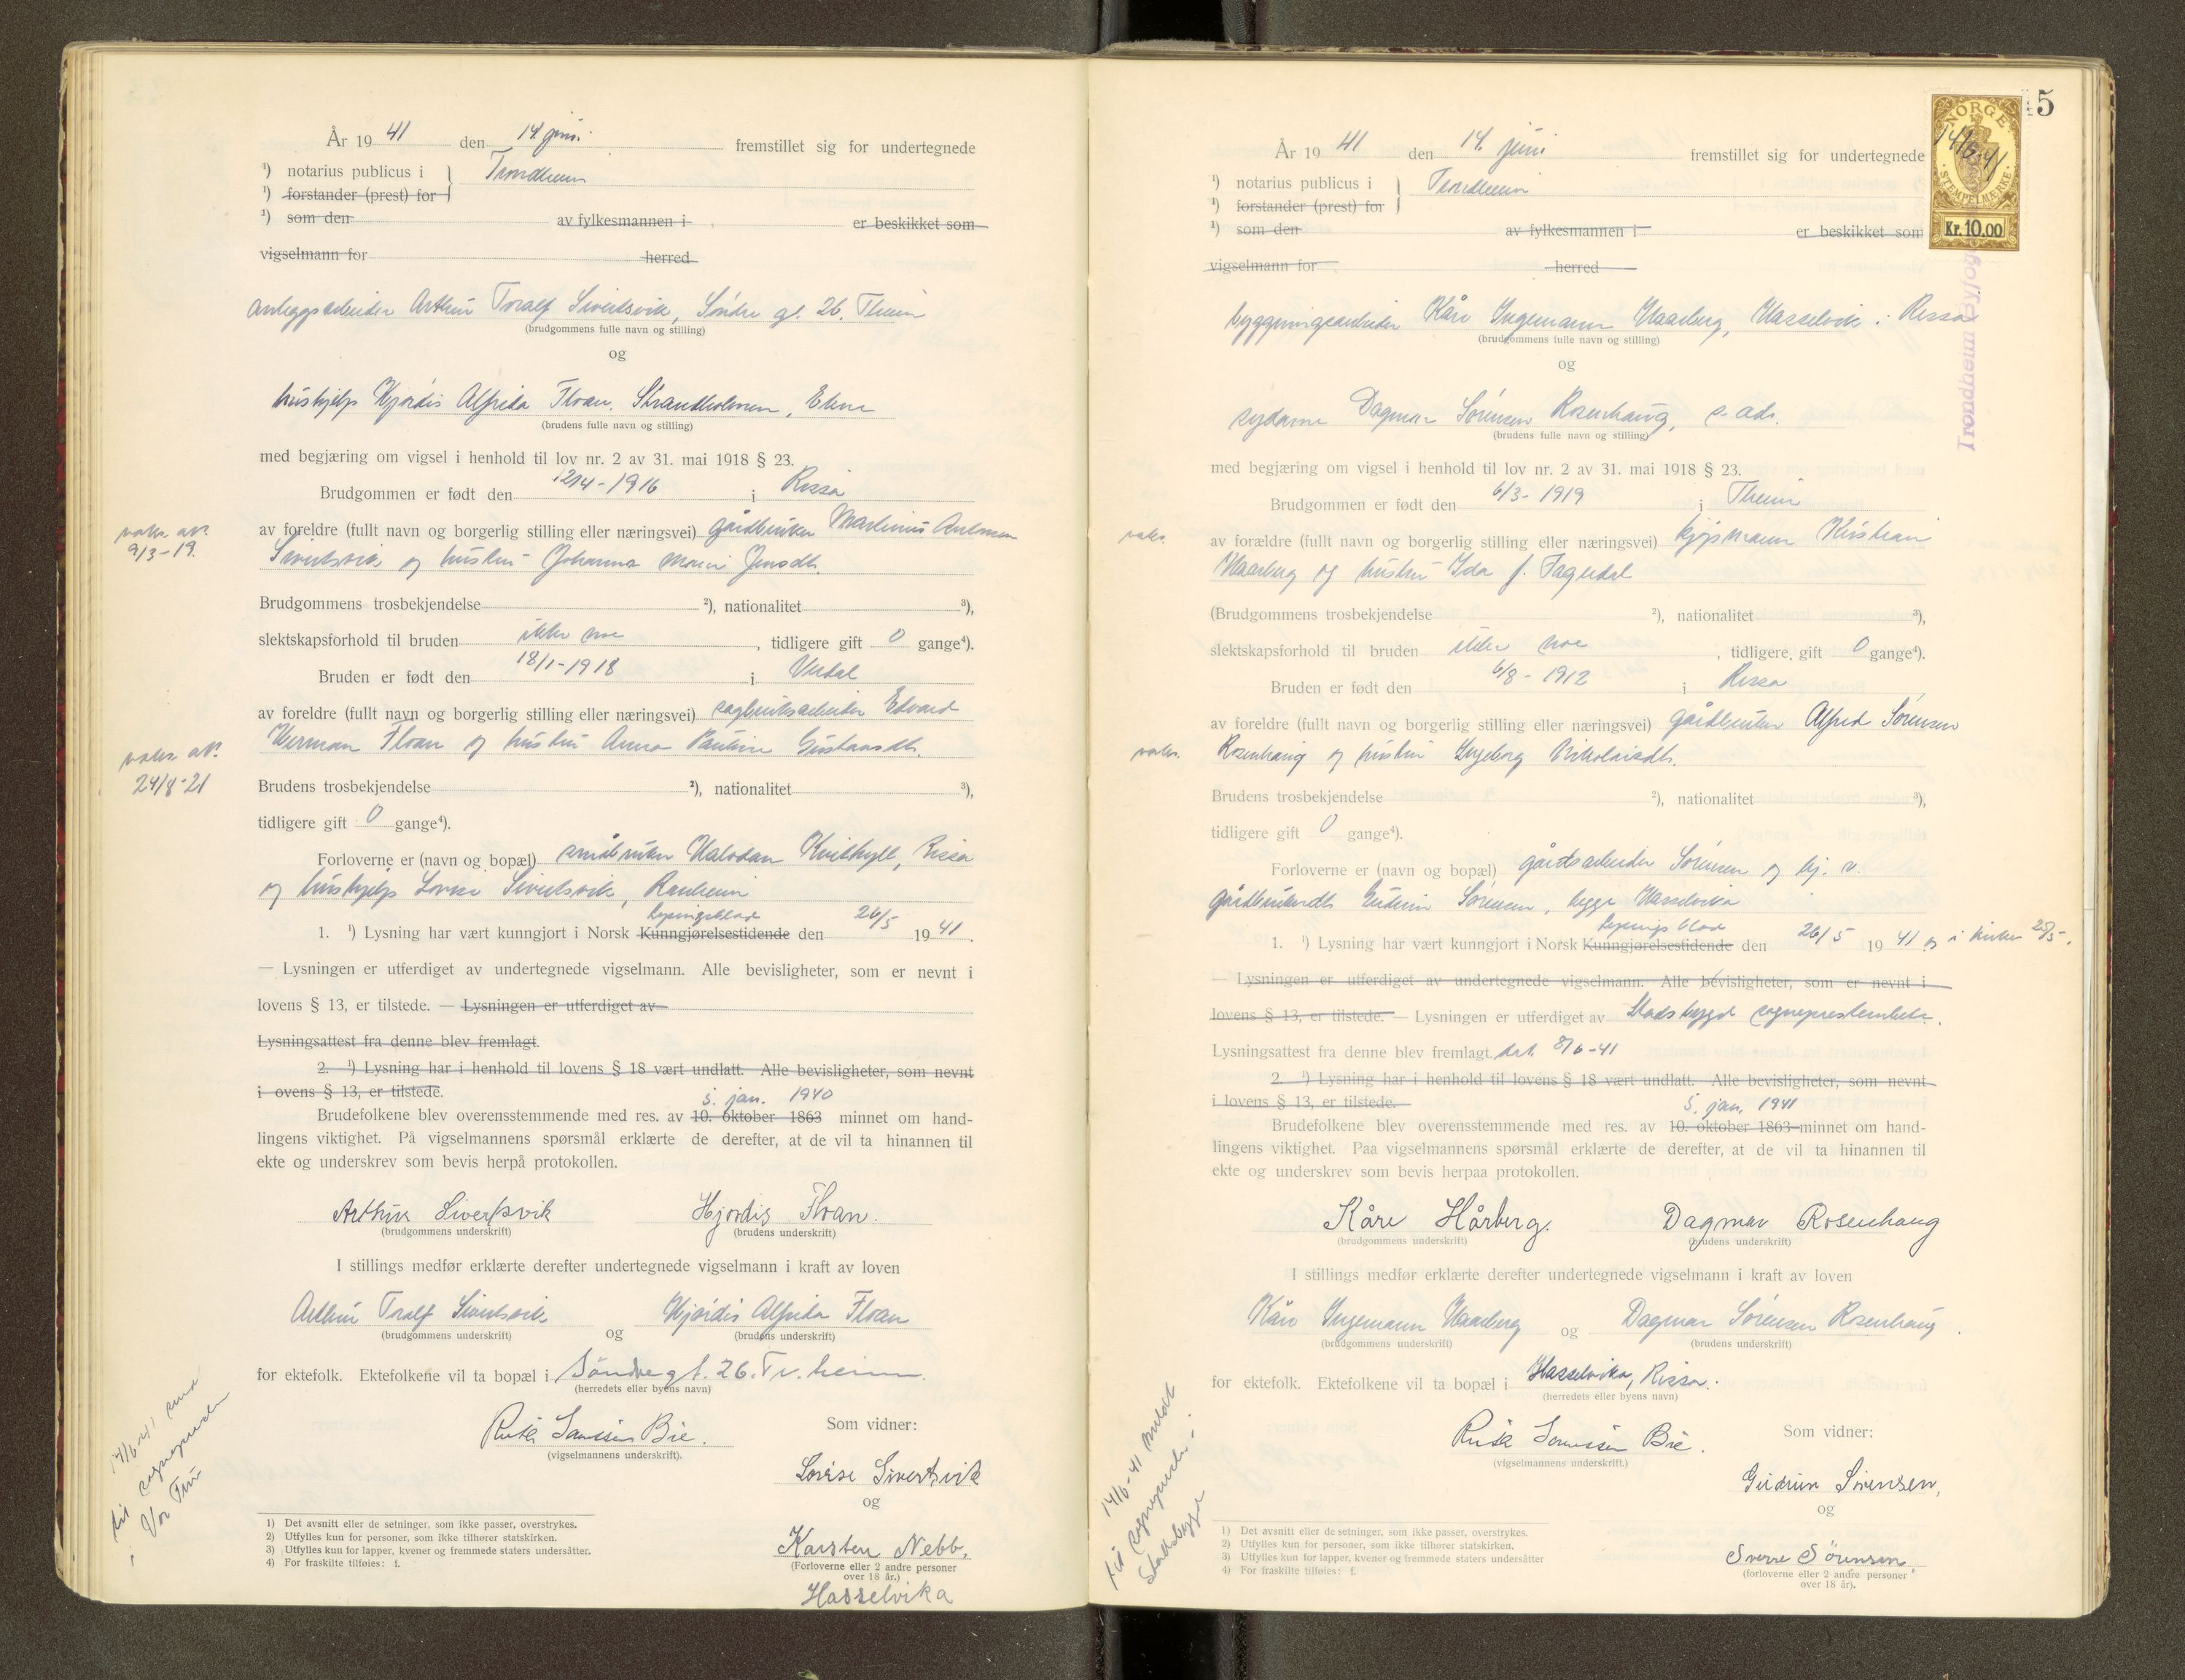 År 19 41 den 14. juni. fremstillet sig for undertegnede
¹) notarius publicus i } Trondheim
¹) forstander (prest) for
¹) som den av fylkesmannen i er beskikket som
vigselmann for herred
anleggsarbeider Arthur Toralf Sivertsvik, Søndre gt. 26. Theim
(brudgommens fulle navn og stilling)
og
hushjelp Hjørdis Alfrida Floan, Strandholmen,
(brudens fulle navn og stilling)
med begjæring om vigsel i henhold til lov nr. 2 av 31. mai 1918 § 23.
Brudgommen er født den 12/4-1916 i Rissa
vaks. att.
9/3-19.
av foreldre (fullt navn og borgerlig stilling eller næringsvei) gårdbruker Martinus
Sivertsvik og hustru Johanna Marie Jensdtr.
Brudgommens trosbekjendelse ²), nationalitet ³),
slektskapsforhold til bruden ikke noe, tidligere gift 0 gange⁴).
Bruden er født den 18/1-1918 i Verdal
av foreldre (fullt navn og borgerlig stilling eller næringsvei) sagbruksarbeider Edvard
Herman Floan og hustru Anna Pauline Gustavsdtr.
vaks. att.
24/8-21
Brudens trosbekjendelse ²), nationalitet ³),
tidligere gift 0 gange⁴).
Forloverne er (navn og bopæl) småbruker Halvdan Kvithyll, Rissa
og hushjelp Lovise Sivertsvik, Ranheim
lysingsblad
1. ¹) Lysning har vært kunngjort i Norsk Kunngjørelsestidende den 26/5 19 41.
— Lysningen er utferdiget av undertegnede vigselmann. Alle bevisligheter, som er nevnt i
lovens § 13, er tilstede. — Lysningen er utferdiget av
Lysningsattest fra denne blev fremlagt.
2. ¹) Lysning har i henhold til lovens § 18 vært undlatt. Alle bevisligheter, som nevnt
i ovens § 13, er tilstede.
5. jan. 1940
Brudefolkene blev overensstemmende med res. av 10. oktober 1863 minnet om hand-
lingens viktighet. På vigselmannens spørsmål erklærte de derefter, at de vil ta hinannen til
ekte og underskrev som bevis herpå protokollen.
Arthur Sivertsvik Hjordis Floan.
(brudgommens underskrift) (brudens underskrift)
I stillings medfør erklærte derefter undertegnede vigselmann i kraft av loven
Arthur Toralf Sivertsvik og Hjørdis Alfrida Floan
(brudgommens underskrift) (brudens underskrift)
for ektefolk. Ektefolkene vil ta bopæl i Søndregt. 26. Tr.heim.
(herredets eller byens navn)
Bie. Som vidner:
(vigselmannens underskrift).
Lovise Sivertsvik
og
Karsten Nebb.
(Forloverne eller 2 andre personer
over 18 år.)
Hasselvika
14/6-41 send
til sogneprest
i Vor Frue
1) Det avsnitt eller de setninger, som ikke passer, overstrykes.
2) Utfylles kun for personer, som ikke tilhører statskirken.
3) Utfylles kun for lapper, kvener og fremmede staters undersåtter.
4) For fraskilte tilføies: f.
5
NORGE
14/6.41
STEMPELMÆRKE
Kr. 10.00
Trondheim Byfog
År 19 41 den 14. juni. fremstillet sig for undertegnede
¹) notarius publicus i } Trondheim
¹) forstander (prest) for
¹) som den av fylkesmannen i er beskikket som
vigselmann for herred
bygningsarbeider Kåre Ingemann Haarberg, Hasselvik i Rissa
(brudgommens fulle navn og stilling)
og
sydame Dagmar Sørensen Rosenhaug, s. ads.
(brudens fulle navn og stilling)
med begjæring om vigsel i henhold til lov nr. 2 av 31. mai 1918 § 23.
Brudgommen er født den 6/3-1919 i Theim
vaks.
av forældre (fullt navn og borgerlig stilling eller næringsvei) kjøpmann Kristian
Haarberg og hustru Ida f. Fagerdal
(Brudgommens trosbekjendelse ²), nationalitet ³),
slektskapsforhold til bruden ikke noe, tidligere gift 0 gange⁴).
Bruden er født den 6/8-1912 i Rissa
av foreldre (fullt navn og borgerlig stilling eller næringsvei) gårdbruker Alfred Sørensen
vaks.
Rosenhaug og hustru Ingeborg Nikolaisdtr.
Brudens trosbekjendelse ²), nationalitet ³),
tidligere gift 0 gange⁴).
Forloverne er (navn og bopæl) gårdsarbeider Sørensen og hj. v.
gårdbrukerdtr. Gudrun Sørensen, begge Hasselvika
lysings blad
1. ¹) Lysning har vært kunngjort i Norsk Kunngjørelsestidende den 26/5 19 41 og i kirken 25/5.
— Lysningen er utferdiget av undertegnede vigselmann. Alle bevisligheter, som er nevnt i
lovens § 13, er tilstede. — Lysningen er utferdiget av Stadsbygd sogneprestembete.
Lysningsattest fra denne blev fremlagt, dat. 8/6-41
2. ¹) Lysning har i henhold til lovens § 18 vært undlatt. Alle bevisligheter, som nevnt
i lovens § 13, er tilstede.
5. jan. 1941
Brudefolkene blev overensstemmende med res. av 10. oktober 1863 minnet om hand-
lingens viktighet. Paa vigselmannens spørsmål erklærte de derefter, at de vil ta hinannen til
ekte og underskrev som bevis herpaa protokollen.
Kåre Hårberg. Dagmar Rosenhaug
(brudgommens underskrift) (brudens underskrift)
I stillings medfør erklærte derefter undertegnede vigselmann i kraft av loven
Kåre Ingemann Haarberg og Dagmar Sørensen Rosenhaug.
(brudgommens underskrift) (brudens underskrift)
for ektefolk. Ektefolkene vil ta bopæl i Hasselvika, Rissa.
(herredets eller byens navn)
Bie. Som vidner:
(vigselmannens underskrift.)
Gudrun Sørensen,
og
Sverre Sørensen
(forloverne eller 2 andre personer
over 18 år).
14/6-41 meldt
til sogneprest i
Stadsbygd
1) Det avsnitt eller de setninger, som ikke passer, overstrykes.
2) Utfylles kun for personer, som ikke tilhører statskirken.
3) Utfylles kun for lapper, kvener og fremmede staters undersåtter
4) For fraskilte tilføies: f.